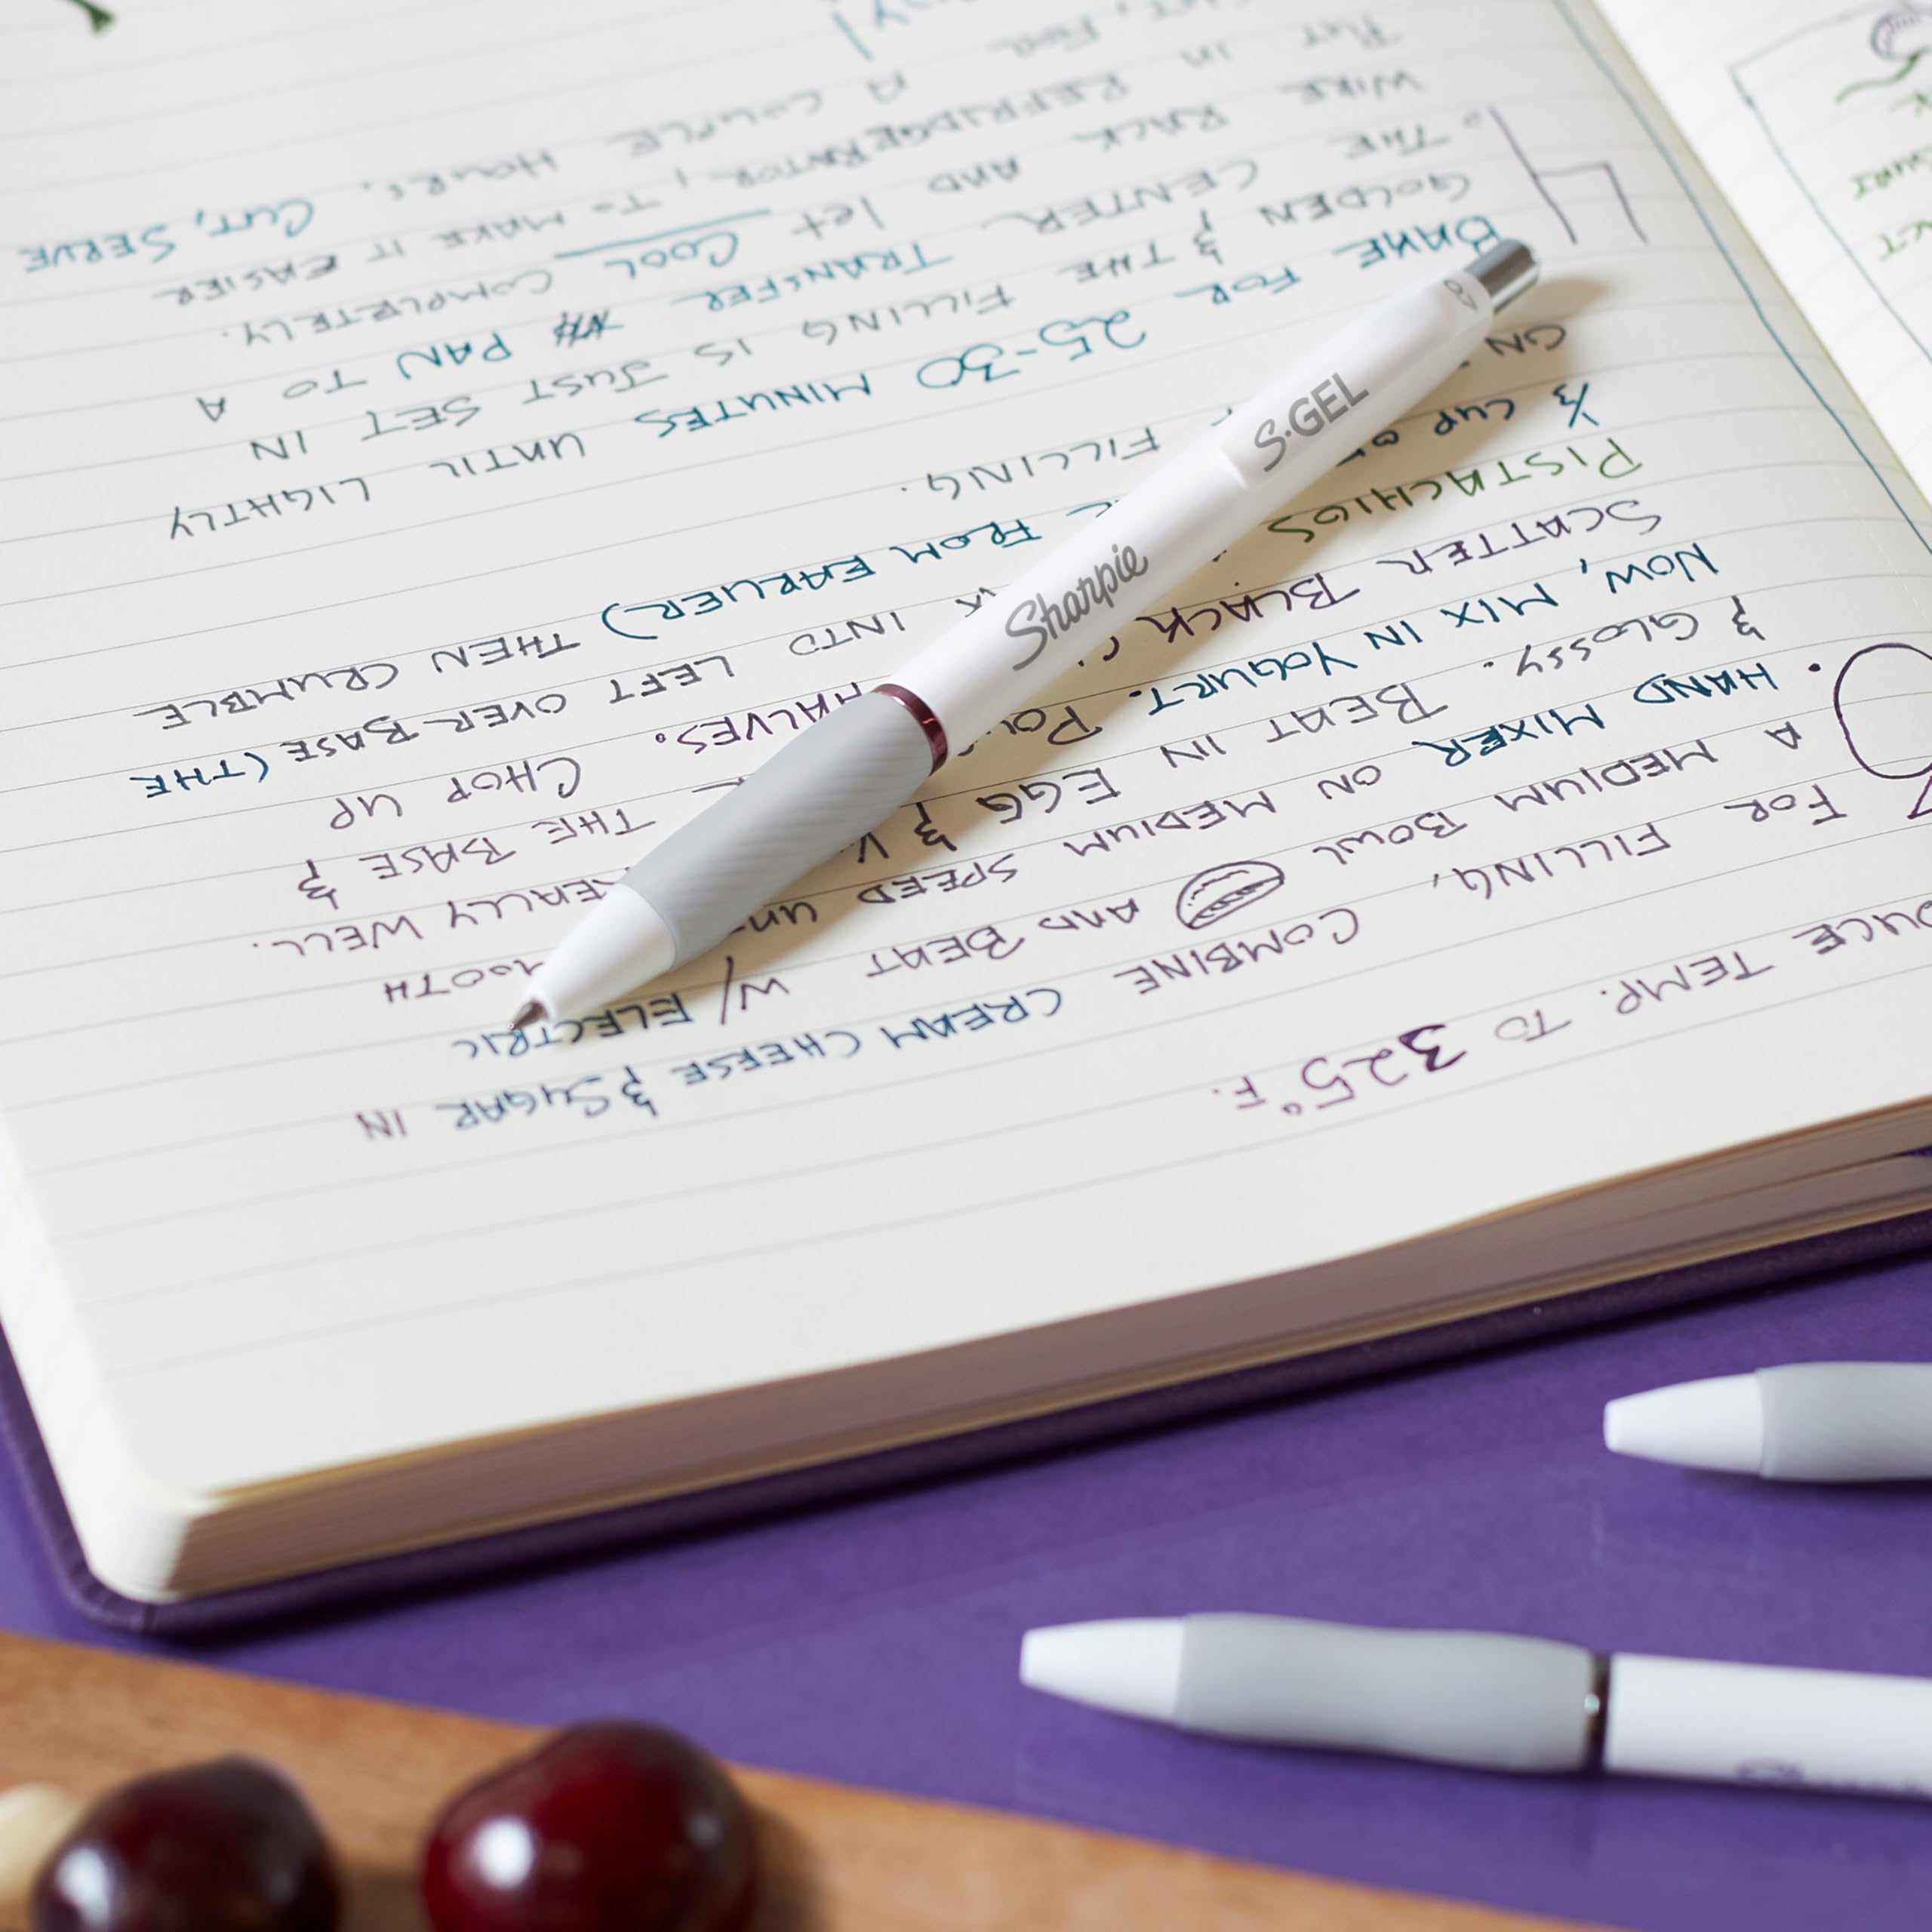 TEMP. TO 325° F.
3
FOR FILLING, COMBINE CREAM CHEESE & SUGAR IN
A MEDIUM BOWL AND BEAT W/ ELECTRIC
HAND MIXER ON MEDIUM SPEED
& GLOSSY. BEAT IN EGG & REALLY WELL.
NOW, MIX IN YOGURT. THE BASE &
SCATTER BLACK HALVES. CHOP UP
PISTACHIOS INTO LEFT OVER BASE (THE
⅓ CUP OF FROM EARLIER) THEN CRUMBLE
ON FILLING.
4
BAKE FOR 25-30 MINUTES UNTIL LIGHTLY
GOLDEN & THE FILLING IS JUST SET IN
THE CENTER. TRANSFER PAN TO A
WIRE RACK AND let COOL COMPLETELY.
PUT IN REFRIDGERATOR, TO MAKE IT EASIER
FOR A COUPLE HOURS. CUT, SERVE
Sharpie S·GEL